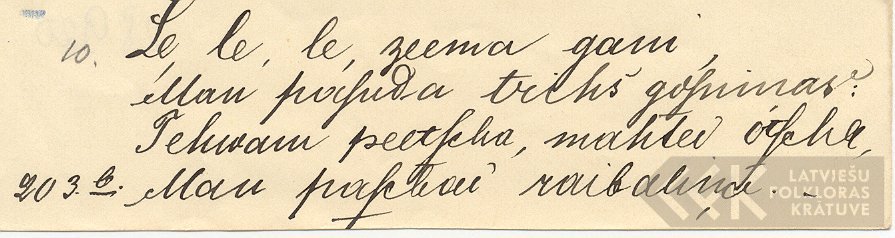 10. Le, le, le, zeema gani,
Man pasuda trihs gosninas:
Tehwam peetscha, mahtei otscha,
203.6. Man paschai raibaliņa.
LATVIEŠU
FOLKLORAS
KRĀTUVE